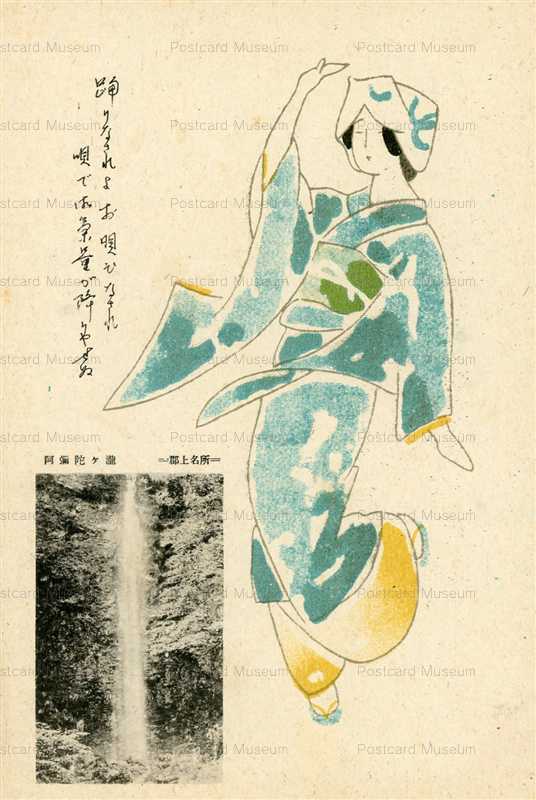 踊りなされよお唄ひなされ
唄でお氣量が降りやせぬ
阿彌陀ヶ瀧 =郡上名所=
Postcard Museum